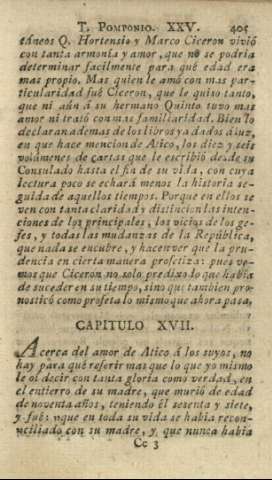 T. POMPONIO. XXV. 405
táneos Q. Hortensio y Marco Ciceron vivió
con tanta armonía y amor, que no se podria
determinar facilmente para qué edad era
mas propio. Mas quien le amó con mas par-
ticularidad fué Ciceron, que le quiso tanto,
que ni aun á su hermano Quinto tuvo mas
amor ni trató con mas familiaridad. Bien lo
declaran ademas de los libros ya dados á luz,
en que hace mencion de Atico, los diez y seis
volúmenes de cartas que le escribió desde su
Consulado hasta el fin de su vida, con cuya
lectura poco se echará menos la historia se-
guida de aquellos tiempos. Porque en ellos se
ven con tanta claridad y distincion las inten-
ciones de los principales, los vicios de los ge-
fes, y todas las mudanzas de la República,
que nada se encubre, y hacen ver que la pru-
dencia en cierta manera profetiza: pues ve-
mos que Ciceron no solo predixo lo que habia
de suceder en su tiempo, sino que tambien pro-
nosticó como profeta lo mismo que ahora pasa.
CAPITULO XVII.
Acerca del amor de Atico á los suyos, no
hay para qué referir mas que lo que yo mismo
le oí decir con tanta gloria como verdad, en
el entierro de su madre, que murió de edad
de noventa años, teniendo él sesenta y siete,
y fué: que en toda su vida se habia recon-
ciliado con su madre, y que nunca habia
Cc 3